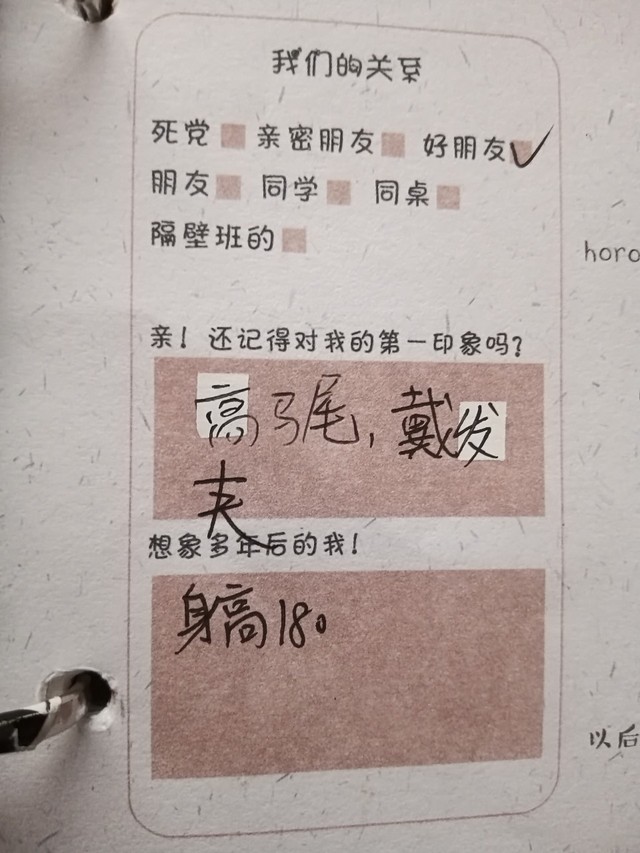 我们的关系
死党 亲密朋友 好朋友✓
朋友 同学 同桌
隔壁班的
horo
亲！还记得对我的第一印象吗？
高马尾，戴发
夹
想象多年后的我！
身高180
以后